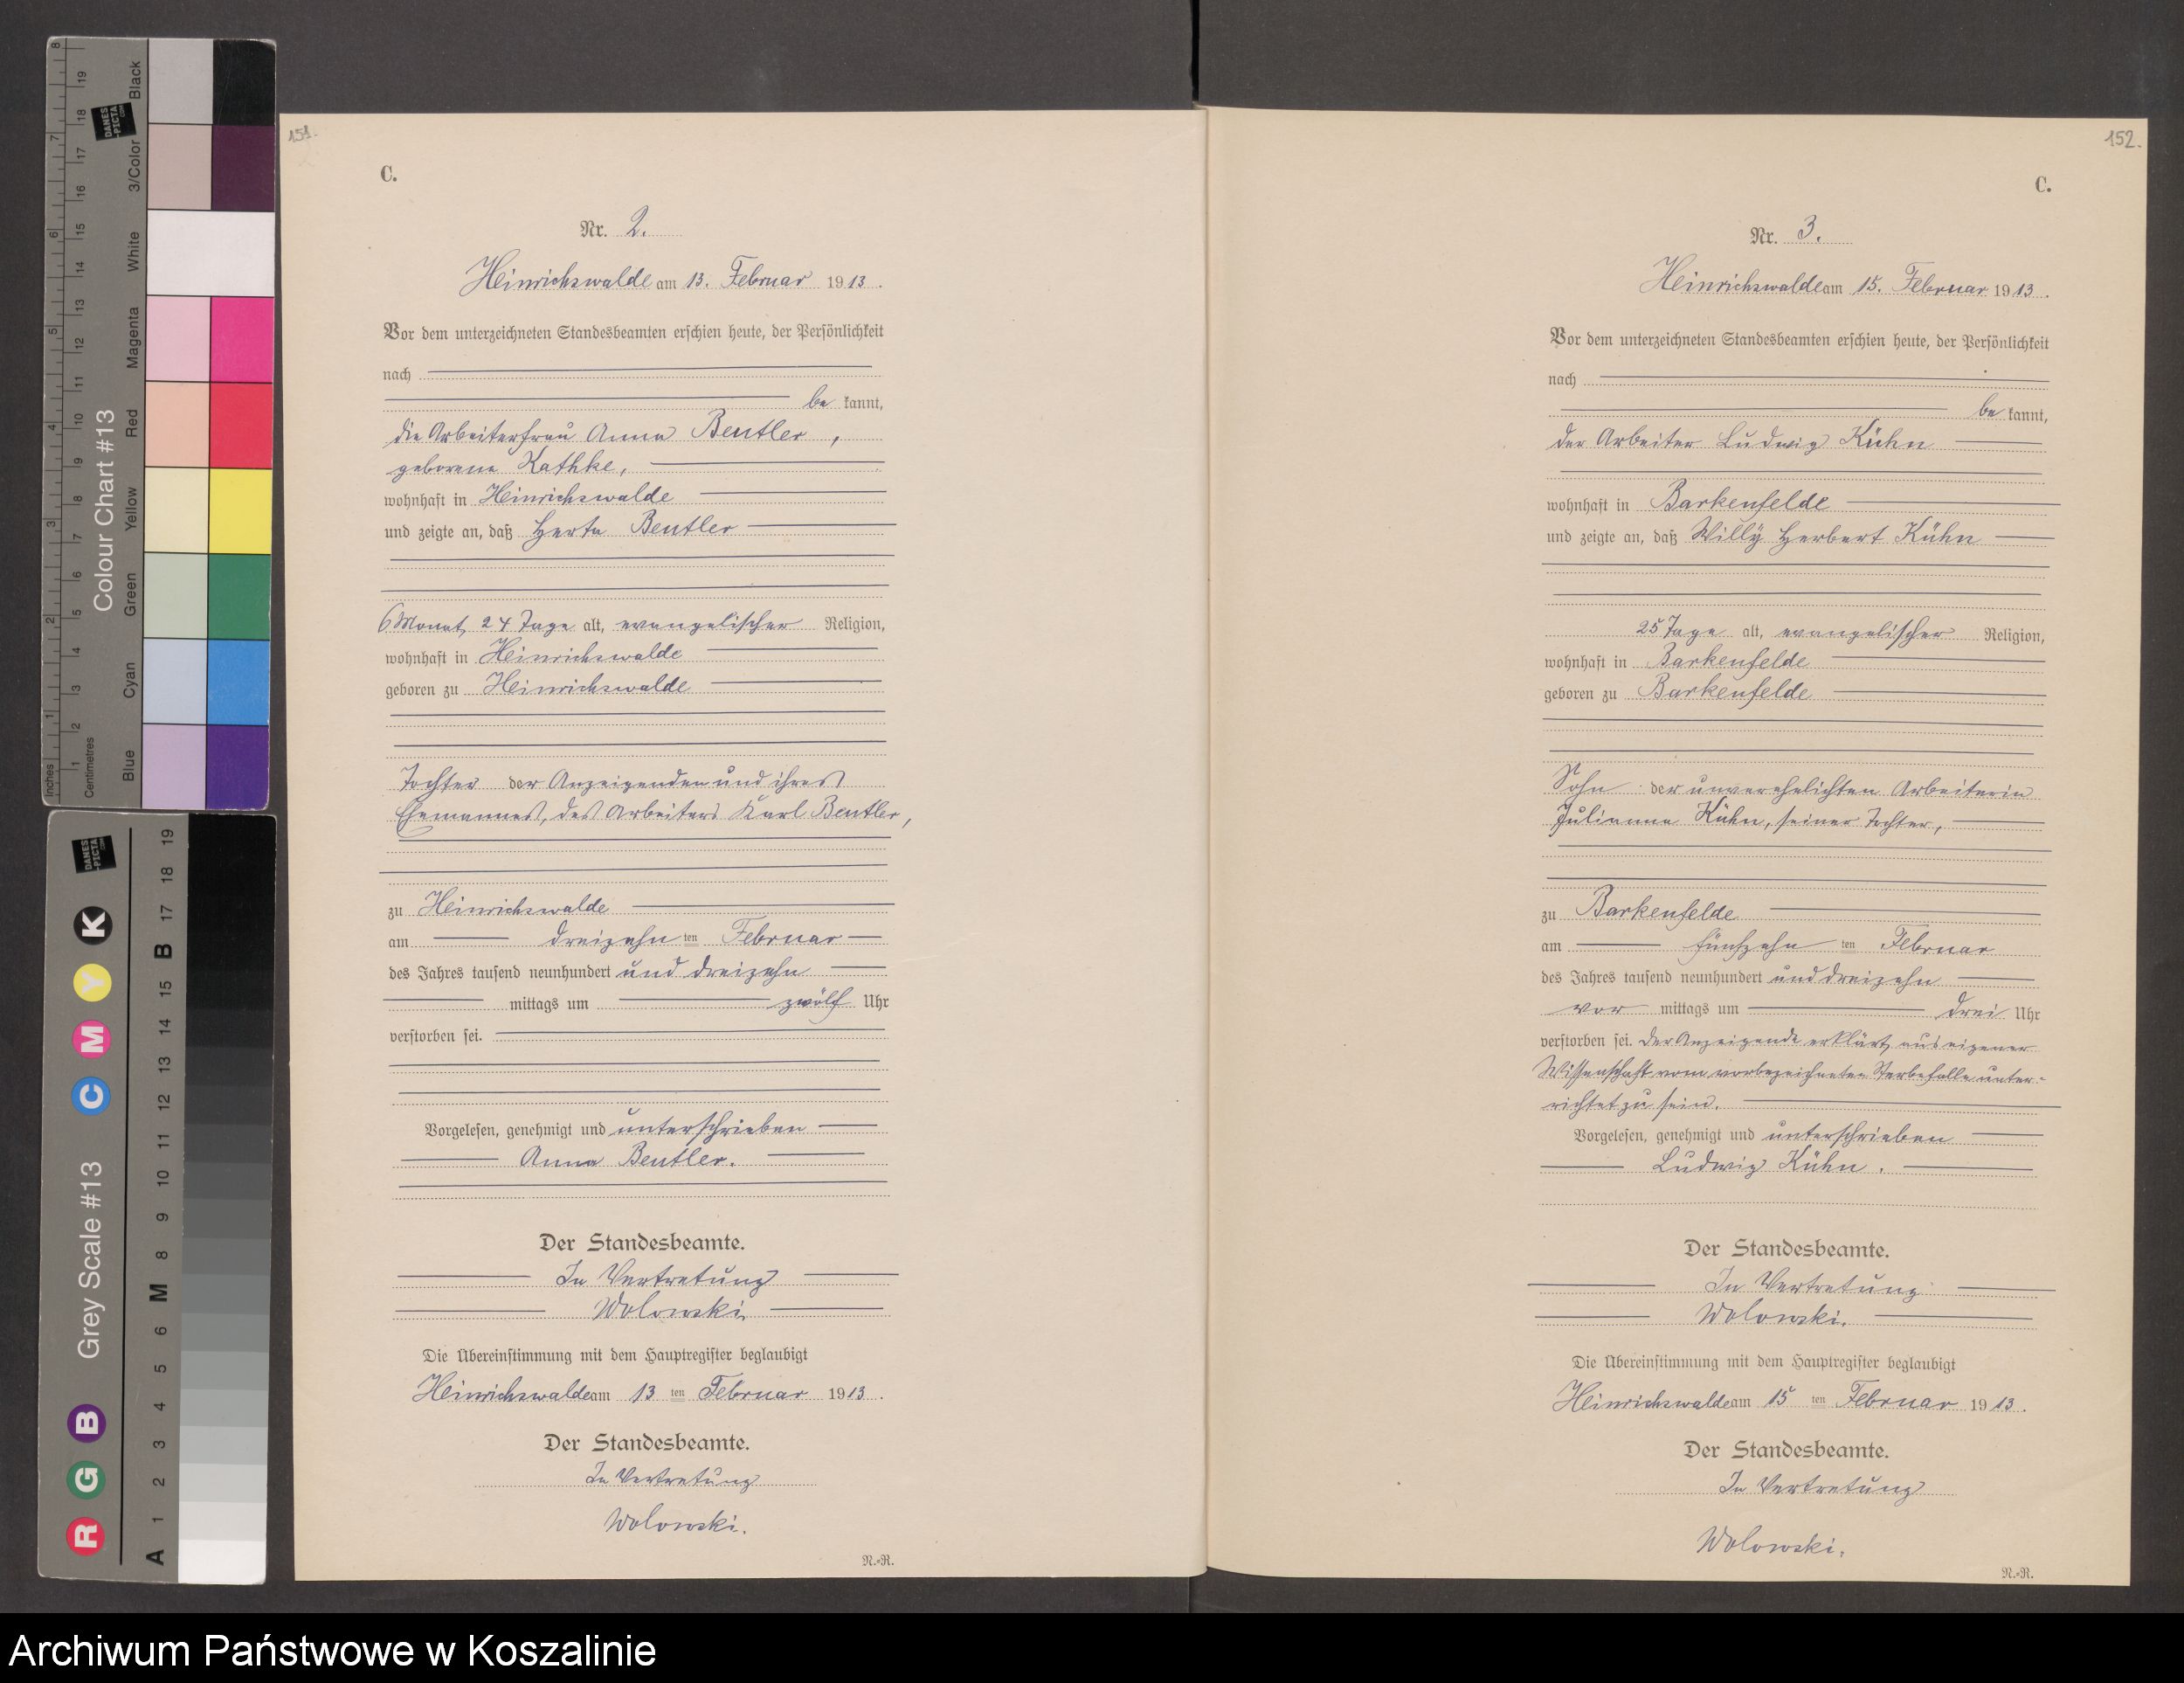 151.
C.
Nr. 2.
Heinrichswalde am 13. Februar 1913.
Vor dem unterzeichneten Standesbeamten erschien heute, der Persönlichkeit
nach
be kannt,
die Arbeiterfrau Anna Beutler,
geborene Kathke,
wohnhaft in Heinrichswalde
und zeigte an, daß Herta Beutler
6 Monat, 24 Tage alt, evangelischer Religion,
wohnhaft in Heinrichswalde
geboren zu Heinrichswalde
Tochter der Anzeigenden und ihres
Ehemannes, des Arbeiters Karl Beutler,
zu Heinrichswalde
am dreizehn ten Februar
des Jahres tausend neunhundert und dreizehn
mittags um zwölf Uhr
verstorben sei.
Vorgelesen, genehmigt und unterschrieben
Anna Beutler.
Der Standesbeamte.
In Vertretung
Wolowski.
Die Übereinstimmung mit dem Hauptregister beglaubigt
Heinrichswalde am 13 ten Februar 1913.
Der Standesbeamte.
In Vertretung
Wolowski.
N.-R.
152.
C.
Nr. 3.
Heinrichswalde am 15. Februar 1913.
Vor dem unterzeichneten Standesbeamten erschien heute, der Persönlichkeit
nach
be kannt,
der Arbeiter Ludwig Kühn
wohnhaft in Barkenfelde
und zeigte an, daß Willy Herbert Kühn
25 Tage alt, evangelischer Religion,
wohnhaft in Barkenfelde
geboren zu Barkenfelde
Sohn der unverehelichten Arbeiterin
Julianna Kühn, seiner Tochter,
zu Barkenfelde
am fünfzehn ten Februar
des Jahres tausend neunhundert und dreizehn
vor mittags um drei Uhr
verstorben sei. Der Anzeigende erklärt, aus eigener
Wissenschaft vom vorbezeichneten Sterbefalle unter-
richtet zu sein.
Vorgelesen, genehmigt und unterschrieben
Ludwig Kühn.
Der Standesbeamte.
In Vertretung
Wolowski.
Die Übereinstimmung mit dem Hauptregister beglaubigt
Heinrichswalde am 15 ten Februar 1913.
Der Standesbeamte.
In Vertretung
Wolowski.
N.-R.
Colour Chart #13
Black
3/Color
White
Magenta
Red
Yellow
Green
Cyan
Blue
Inches
Centimetres
DANES
-PICTA
.COM
Grey Scale #13
R G B C M Y K
A 1 2 3 4 5 6 M 8 9 10 11 12 13 14 15 B 17 18 19
Archiwum Państwowe w Koszalinie